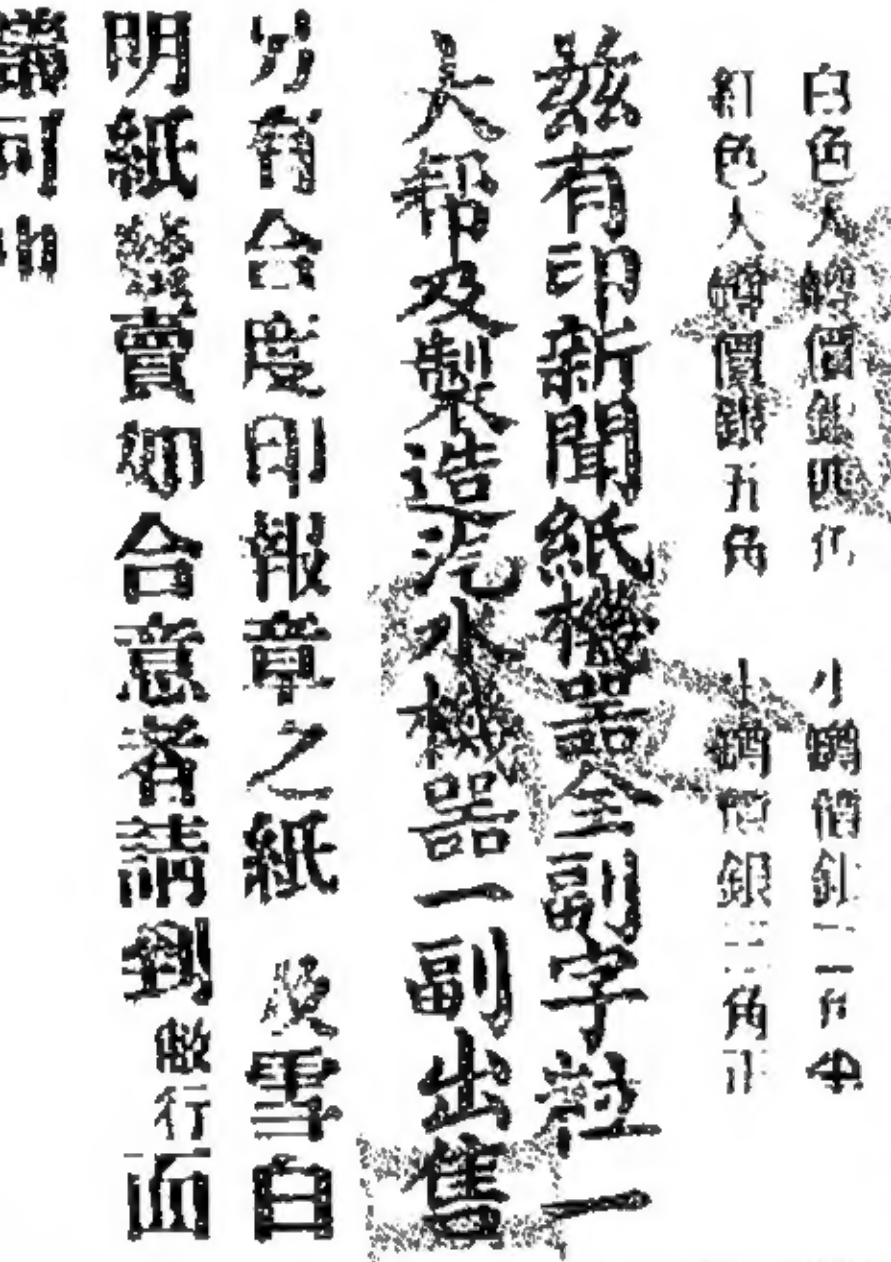 白色大罇價銀四角 小罇價銀二角半
紅色大罇價銀五角 小罇價銀三角正
茲有印新聞紙機器全副字粒一
大帮及製造汽水機器一副出售
另有合度印報章之紙 及雪白
明紙發賣如合意者請到敝行面
議可也